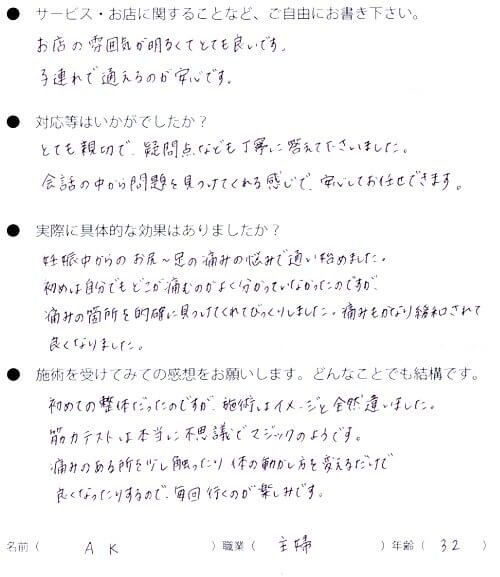 ● サービス・お店に関することなど、ご自由にお書き下さい。
お店の雰囲気が明るくてとても良いです。
子連れで通えるのが安心です。
● 対応等はいかがでしたか？
とても親切で、疑問点なども丁寧に答えてくださいました。
会話の中から問題を見つけてくれる感じで、安心してお任せできます。
● 実際に具体的な効果はありましたか？
妊娠中からのお尻〜足の痛みの悩みで通い始めました。
初めは自分でもどこが痛むのかよく分かっていなかったのですが、
痛みの箇所を的確に見つけてくれてびっくりしました。痛みもかなり緩和されて
良くなりました。
● 施術を受けてみての感想をお願いします。どんなことでも結構です。
初めての整体だったのですが、施術はイメージと全然違いました。
筋力テストは本当に不思議でマジックのようです。
痛みのある所を少し触ったり体の動かし方を変えるだけで
良くなったりするので、毎回行くのが楽しみです。
名前（ A K ）職業（ 主婦 ）年齢（ 32 ）